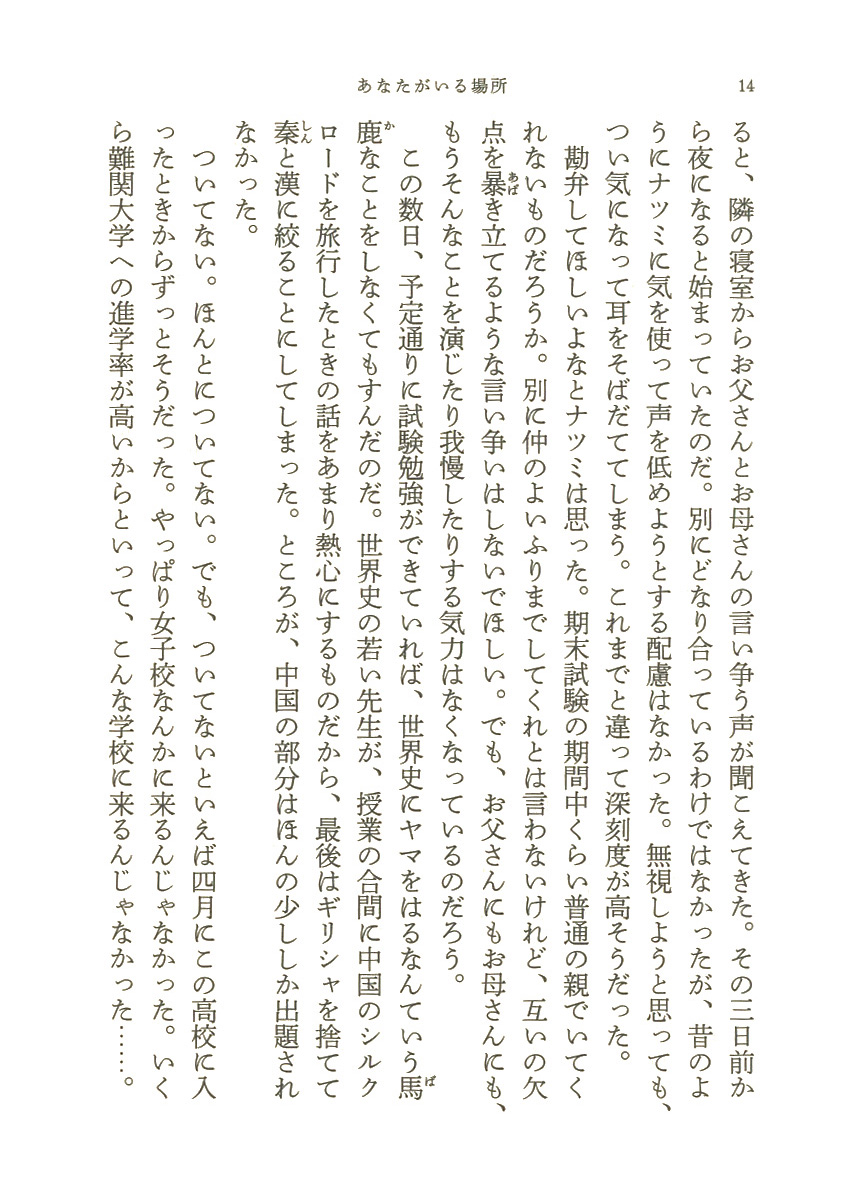 あなたがいる場所
14
ると、隣の寝室からお父さんとお母さんの言い争う声が聞こえてきた。その三日前か
ら夜になると始まっていたのだ。別にどなり合っているわけではなかったが、昔のよ
うにナツミに気を使って声を低めようとする配慮はなかった。無視しようと思っても、
つい気になって耳をそばだててしまう。これまでと違って深刻度が高そうだった。
勘弁してほしいよなとナツミは思った。期末試験の期間中くらい普通の親でいてく
れないものだろうか。別に仲のよいふりまでしてくれとは言わないけれど、互いの欠
点を暴き立てるような言い争いはしないでほしい。でも、お父さんにもお母さんにも、
もうそんなことを演じたり我慢したりする気力はなくなっているのだろう。
この数日、予定通りに試験勉強ができていれば、世界史にヤマをはるなんていう馬
鹿なことをしなくてもすんだのだ。世界史の若い先生が、授業の合間に中国のシルク
ロードを旅行したときの話をあまり熱心にするものだから、最後はギリシャを捨てて
秦と漢に絞ることにしてしまった。ところが、中国の部分はほんの少ししか出題され
なかった。
ついてない。ほんとについてない。でも、ついてないといえば四月にこの高校に入
ったときからずっとそうだった。やっぱり女子校なんかに来るんじゃなかった。いく
ら難関大学への進学率が高いからといって、こんな学校に来るんじゃなかった……。